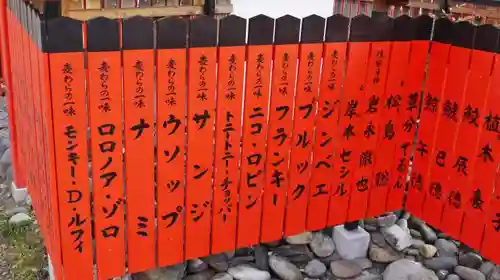 麦わらの一味 モンキー・D・ルフィ
麦わらの一味 ロロノア・ゾロ
麦わらの一味 ナミ
麦わらの一味 ウソップ
麦わらの一味 サンジ
麦わらの一味 トニートニー・チョッパー
麦わらの一味 ニコ・ロビン
麦わらの一味 フランキー
麦わらの一味 ブルック
麦わらの一味 ジンベエ
岸本セシル
岩永徹也
松島聡
草分てるん
巳徳
辰徳
植木